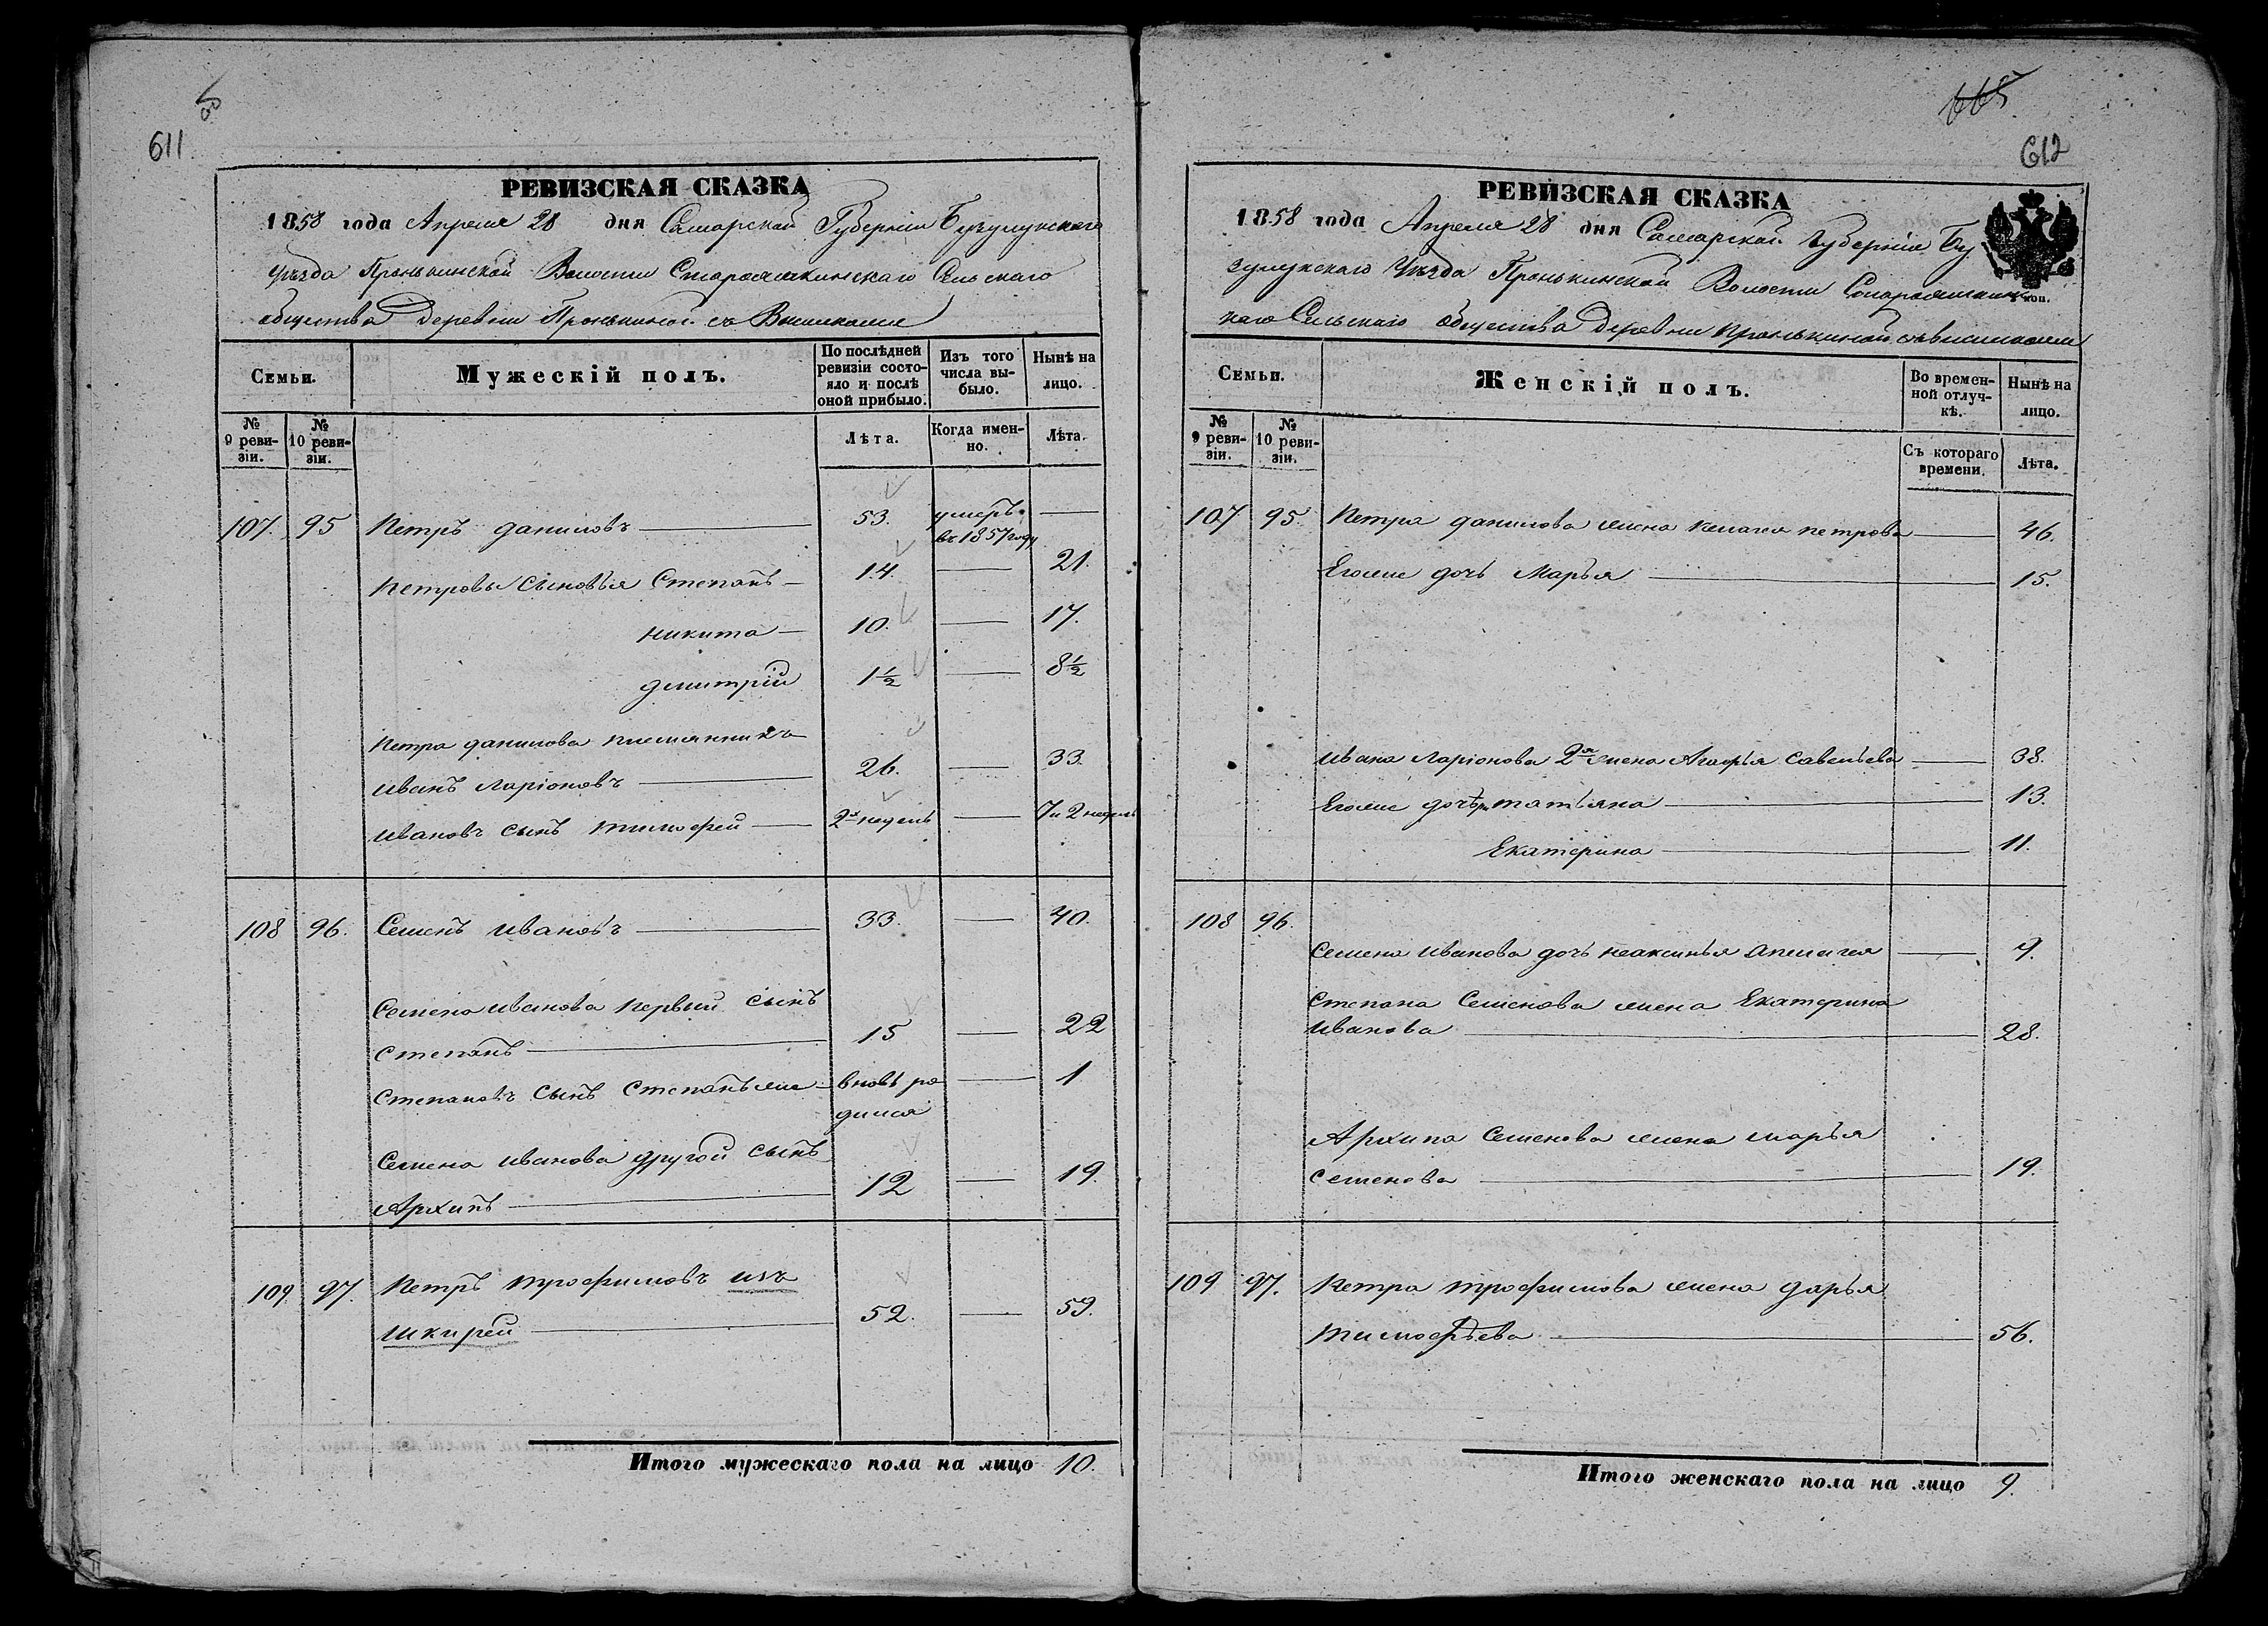 611
РЕВИЗСКАЯ СКАЗКА
1858 года Апреля 28 дня Самарской Губерніи Бузулукскаго
Уѣзда Пронькинской Волости Сельскаго
общества Деревни Пронькиной
Семьи.
Мужескій полъ.
По послѣдней ревизіи состояло и послѣ оной прибыло.
Изъ того числа выбыло.
Нынѣ на лицо.
№ 9 ревизіи.
№ 10 ревизіи.
Лѣта.
Когда именно.
Лѣта.
107. 95 Петръ даниловъ 53. умеръ въ 1857 году
Петровы сыновья Степанъ 14. 21.
никита 10. 17.
дмитрій 1½ 8½
Петра данилова племянникъ
иванъ ларіоновъ 26. 33.
ивановъ сынъ тимофей 2х недель 7 и 2 недель
108 96. Семенъ ивановъ 33. 40.
Семена иванова первый сынъ
степанъ 15 22
степановъ сынъ степанъ же вновь ро 1
дился
Семена иванова другой сынъ
Архипъ 12 19.
109. 97. Петръ трофимовъ изъ
шкирей 52. 59.
Итого мужескаго пола на лицо 10.
665
612
РЕВИЗСКАЯ СКАЗКА
1858 года Апреля 28 дня Самарской Губерніи Бу
зулукскаго Уѣзда Пронькинской Волости
каго Сельскаго общества Деревни Пронькиной
коп.
Семьи.
Женскій полъ.
Во временной отлучкѣ.
Нынѣ на лицо.
№ 9 ревизіи.
№ 10 ревизіи.
Съ котораго времени.
Лѣта.
107 95. Петра данилова жена пелагея петрова 46.
Егоже дочь Марья 15.
ивана ларіонова 2я жена Агафья савельева 38.
Егоже дочѣри татьяна 13.
Екатерина 11.
108 96.
Семена иванова дочь пелагея 9.
степана Семенова жена Екатерина
иванова 28.
Архипа Семенова жена марья
семенова 19.
109 97. Петра трофимова жена дарья
тимофѣева 56.
Итого женскаго пола на лицо 9.